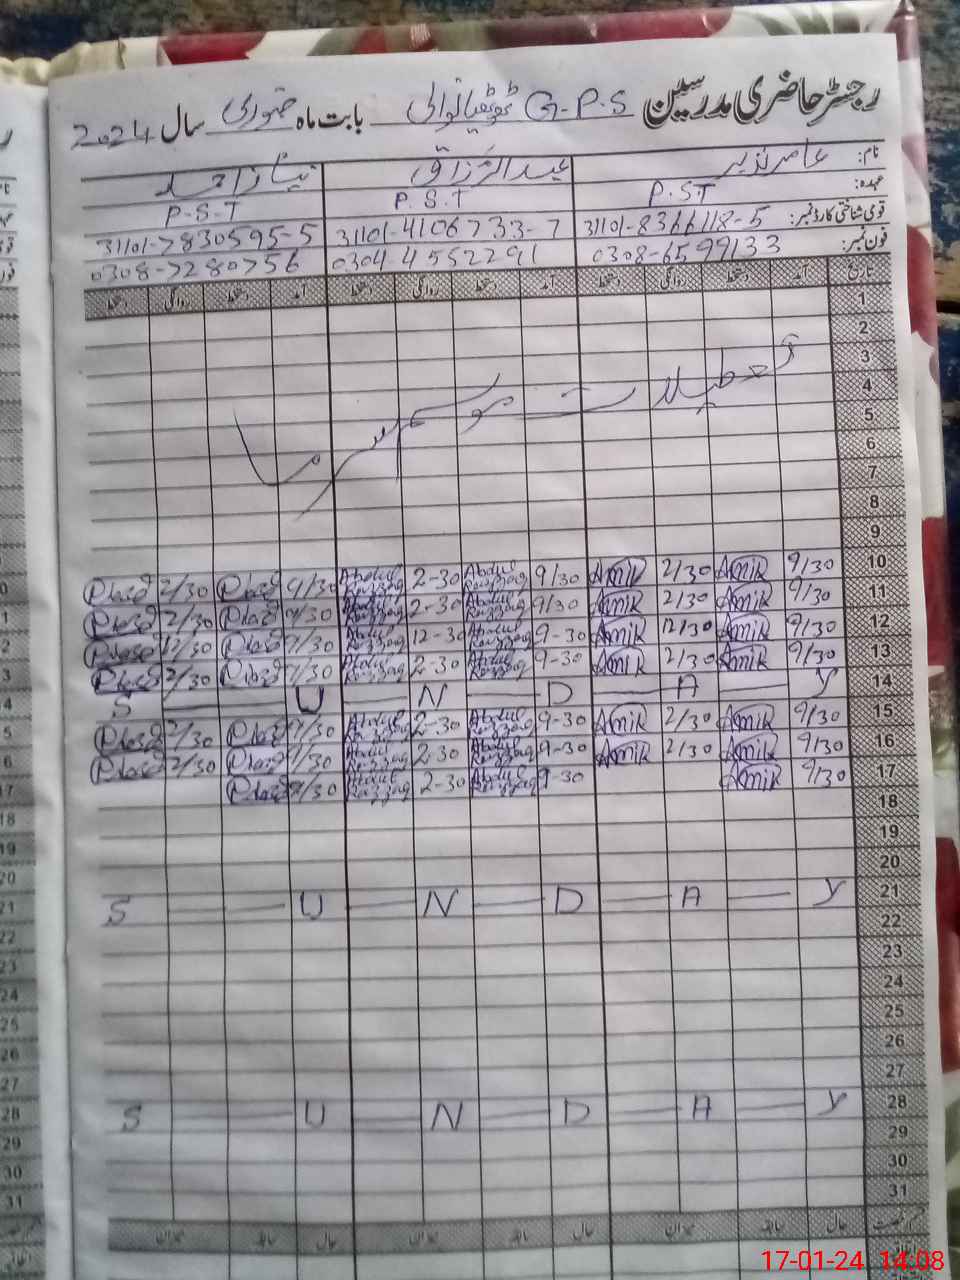 رجسٹر حاضری مدرسین G-P-S ٹھٹھیانوالی بابت ماہ جنوری سال 2024
نام: عامر نذیر عبدالرزاق نیاز احمد
عہدہ: P.ST P.S.T P-S-T
قومی شناختی کارڈ نمبر: 31101-8366118-5 31101-4106733-7 31101-7830595-5
فون نمبر: 0308-6599133 0304 4552291 0308-7280756
تاریخ آمد دستخط روانگی دستخط آمد دستخط روانگی دستخط آمد دستخط روانگی دستخط
1
2
3
4
5
6
7
8
9
تعطیلات موسم سرما
10 9/30 Amir 2/30 Amir 9/30 Abdul Razzaq 2-30 Abdul Razzaq 9/30 2/30
11 9/30 Amir 2/30 Amir 9/30 Abdul Razzaq 2-30 Abdul Razzaq 9/30 2/30
12 9/30 Amir 12/30 Amir 9-30 Abdul Razzaq 12-30 Abdul Razzaq 9/30 12/30
13 9/30 Amir 2/30 Amir 9-30 Abdul Razzaq 2-30 Abdul Razzaq 9/30 2/30
14 S U N D A Y
15 9/30 Amir 2/30 Amir 9-30 Abdul Razzaq 2-30 Abdul Razzaq 9/30 2/30
16 9/30 Amir 2/30 Amir 9-30 Abdul Razzaq 2-30 Abdul Razzaq 9/30 2/30
17 9/30 Amir 9-30 Abdul Razzaq 2-30 Abdul Razzaq 9/30
18
19
20
21 S U N D A Y
22
23
24
25
26
27
28 S U N D A Y
29
30
31
حال سابقہ میزان حال سابقہ میزان حال سابقہ میزان
17-01-24 14:08